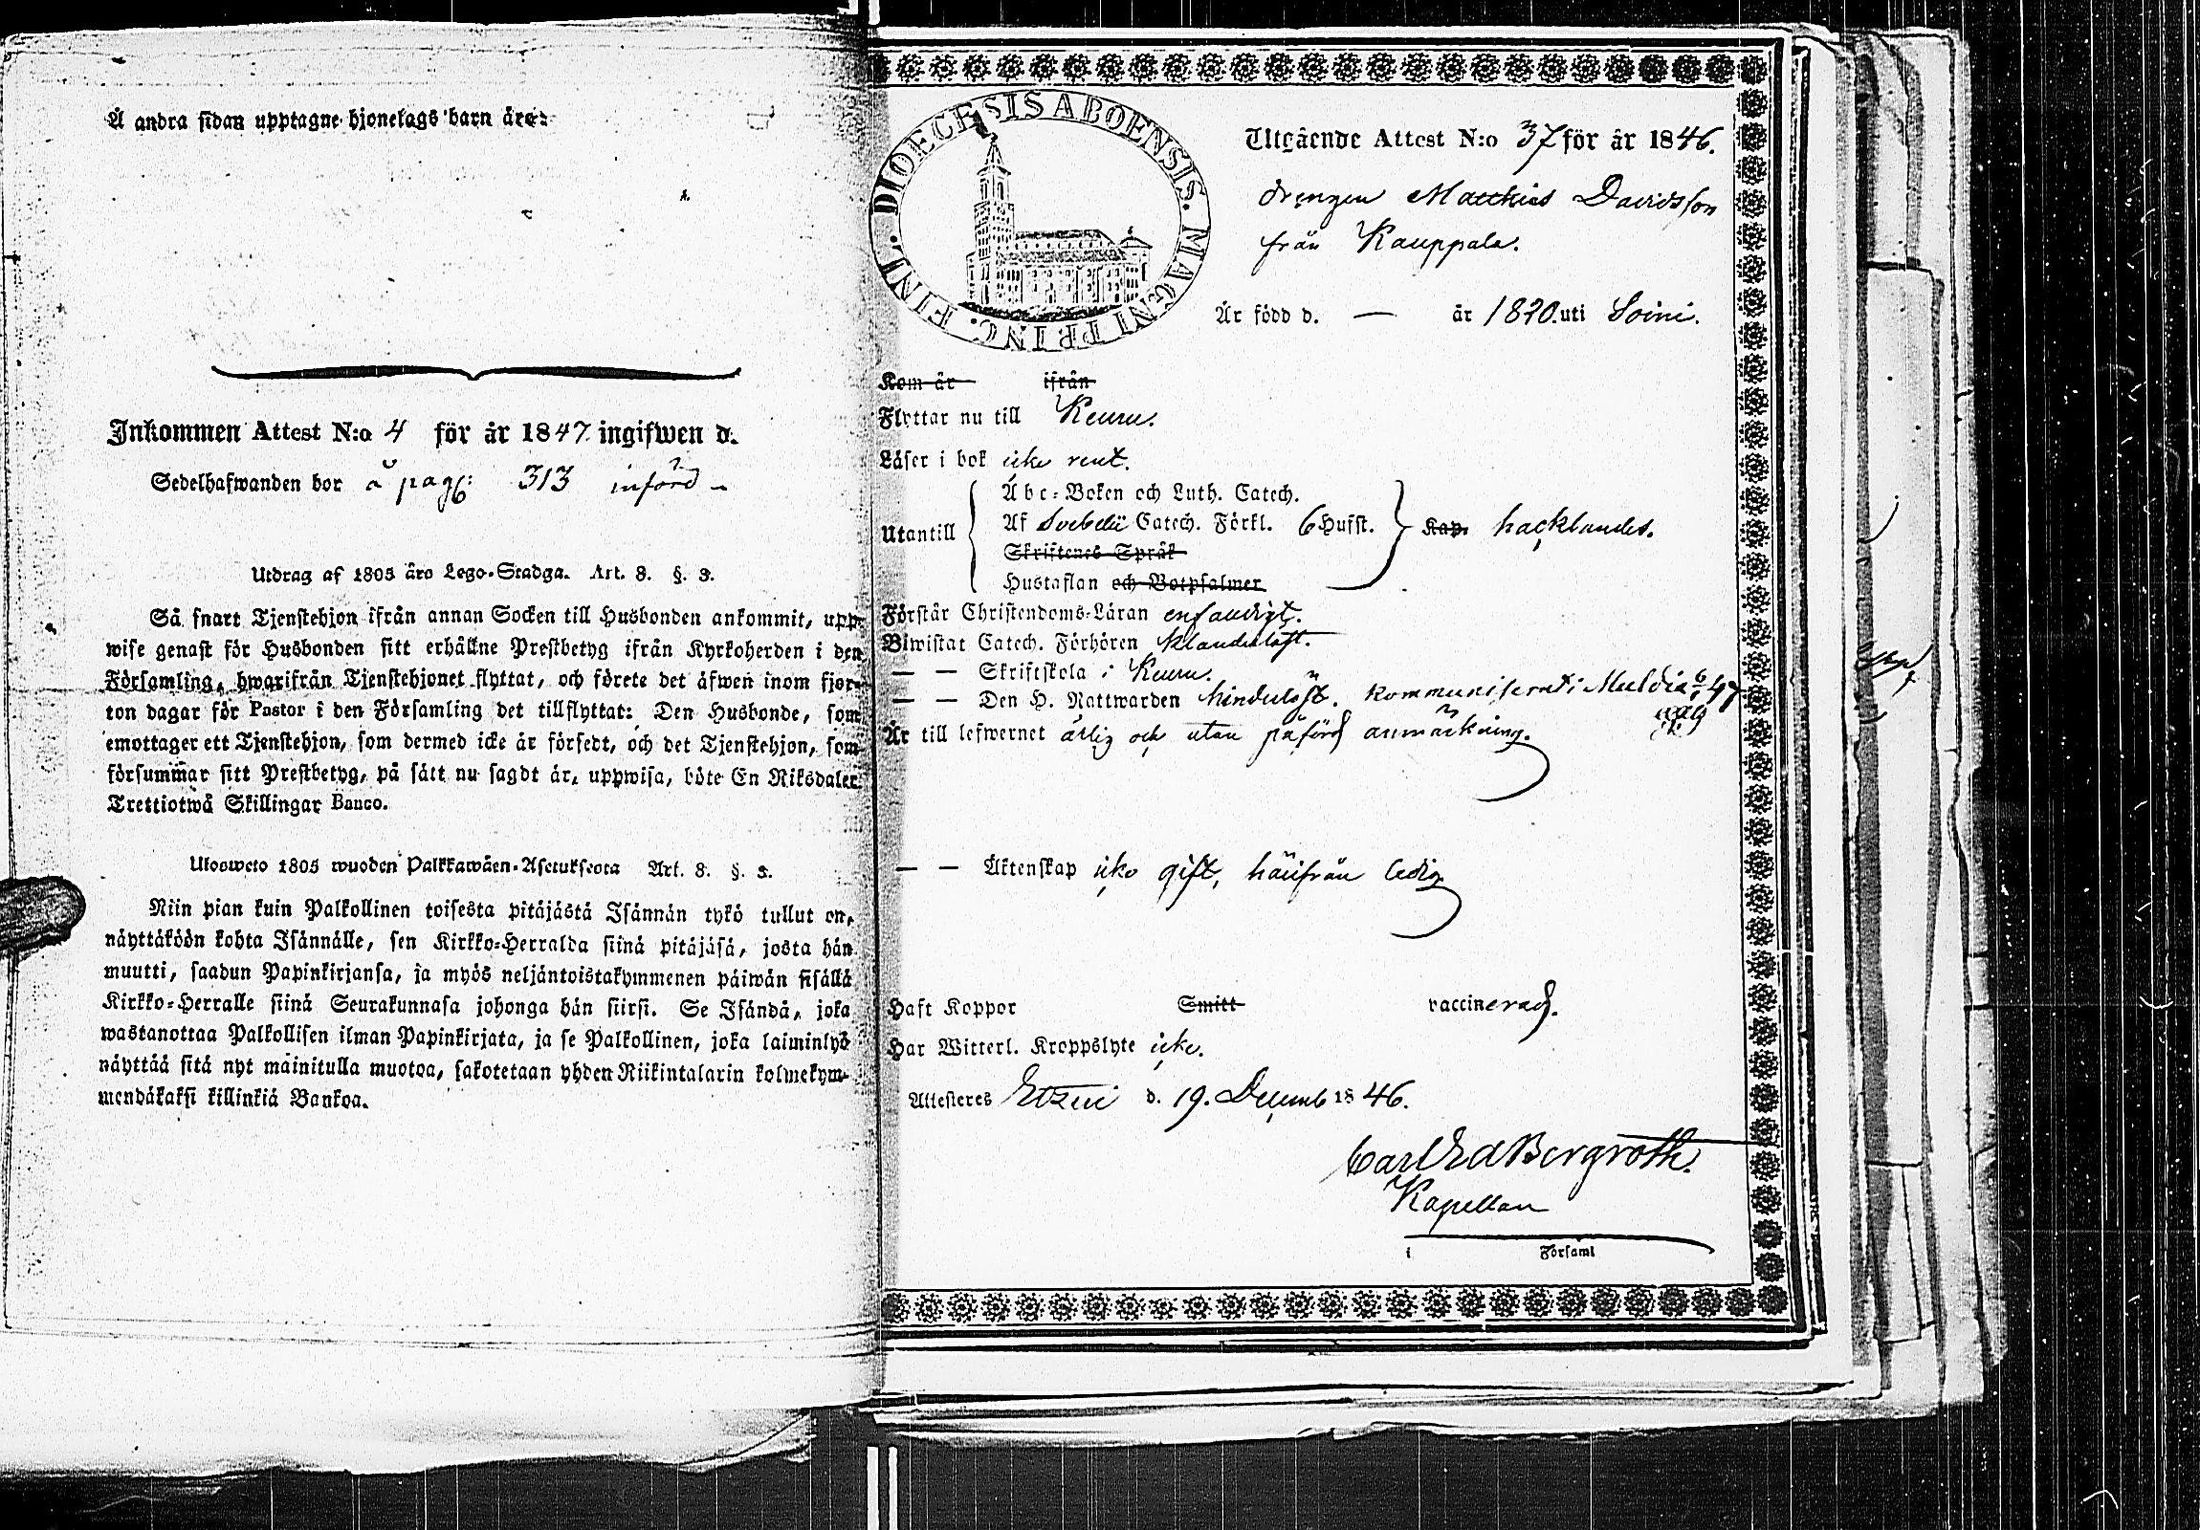 Å andra sidan upptagne hjonelags barn äro:
Inkommen Attest N:o 4 för år 1847 ingifwen d.
Sedelhafwanden bor å pag: 313 införd
Utdrag af 1805 åro Lego-Stadga. Art. 8. §. 3.
Så snart Tjenstehjon ifrån annan Socken till Husbonden ankommit, upp-
wise genast för Husbonden sitt erhållne Prestbetyg ifrån Kyrkoherden i den
Församling, hwarifrån Tjenstehjonet flyttat, och förete det äfwen inom fjor-
ton dagar för Pastor i den Församling det tillflyttat: Den Husbonde, som
emottager ett Tjenstehjon, som dermed icke är försedt, och det Tjenstehjon, som
försummar sitt Prestbetyg, på sätt nu sagdt är, uppwisa, böte En Riksdaler
Trettiotwå Skillingar Banco.
Ulosweto 1805 wuoden Palkkawäen-Asetuksesta Art. 8. §. 3.
Niin pian kuin Palkollinen toisesta pitäjästä Isännän tykö tullut on,
näyttäköön kohta Isännälle, sen Kirkko-Herralda siinä pitäjäsä, josta hän
muutti, saadun Papinkirjansa, ja myös neljäntoistakymmenen päiwän sisällä
Kirkko-Herralle siinä Seurakunnasa johonga hän siirsi. Se Isändä, joka
wastanottaa Palkollisen ilman Papinkirjata, ja se Palkollinen, joka laiminlyö
näyttää sitä nyt mainitulla muotoa, sakotetaan yhden Riikintalarin kolmekym-
mendäkaksi killinkiä Bankoa.
DIOECESIS ABOENSIS. MAGNI PRINC. FINL.
Utgående Attest N:o 37 för år 1846.
drengen Matthias Davidsson
från Kauppala.
Är född d. — år 1820 uti Soini.
Kom år ifrån
Flyttar nu till Keuru.
Läser i bok icke rent.
Utantill
Abc-Boken och Luth. Catech.
Af Svebelii Catech. Förkl. 6 Hufst.
Skriftenes Språk
Hustaflan och Botpsalmer
Kap. hacklandes.
Förstår Christendoms-Läran enfaldigt.
Biwistat Catech. Förhören klanderlöst.
— — Skriftskola i Keuru.
— — Den H. Nattwarden hinderlöst. kommunicerat i Multia 47
Är till lefwernet ärlig och utan påförd anmärkning.
— — Äktenskap icke gift, härifrån ledig
Haft Koppor Smitt vaccinerad.
Har Witterl. Kroppslyte icke.
Attesteres Etzeri d. 19. Decemb 1846.
Carl Ed Bergroth.
Kapellan
i Församl